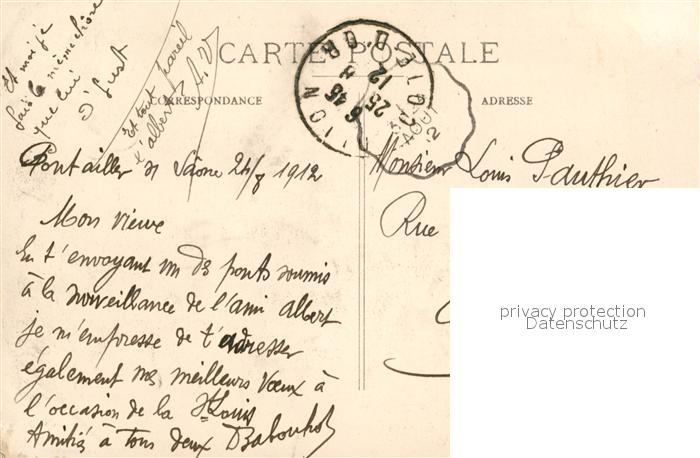 Et moi je
fais la même chose
que lui
S' Just
Et tout pareil
à l'albert A.V
CARTE POSTALE
CORRESPONDANCE
ADRESSE
DIJON
COTE D'OR
6 45
25 8
12
AOUT
12
Pontailler s/ Saône 24/8 1912
Mon vieux
En t'envoyant un des ponts soumis
à la surveillance de l'ami Albert
je m'empresse de t'adresser
également mes meilleurs vœux à
l'occasion de la St Louis
Amitiés à tous deux
Monsieur Louis Pauthier
Rue
privacy protection
Datenschutz